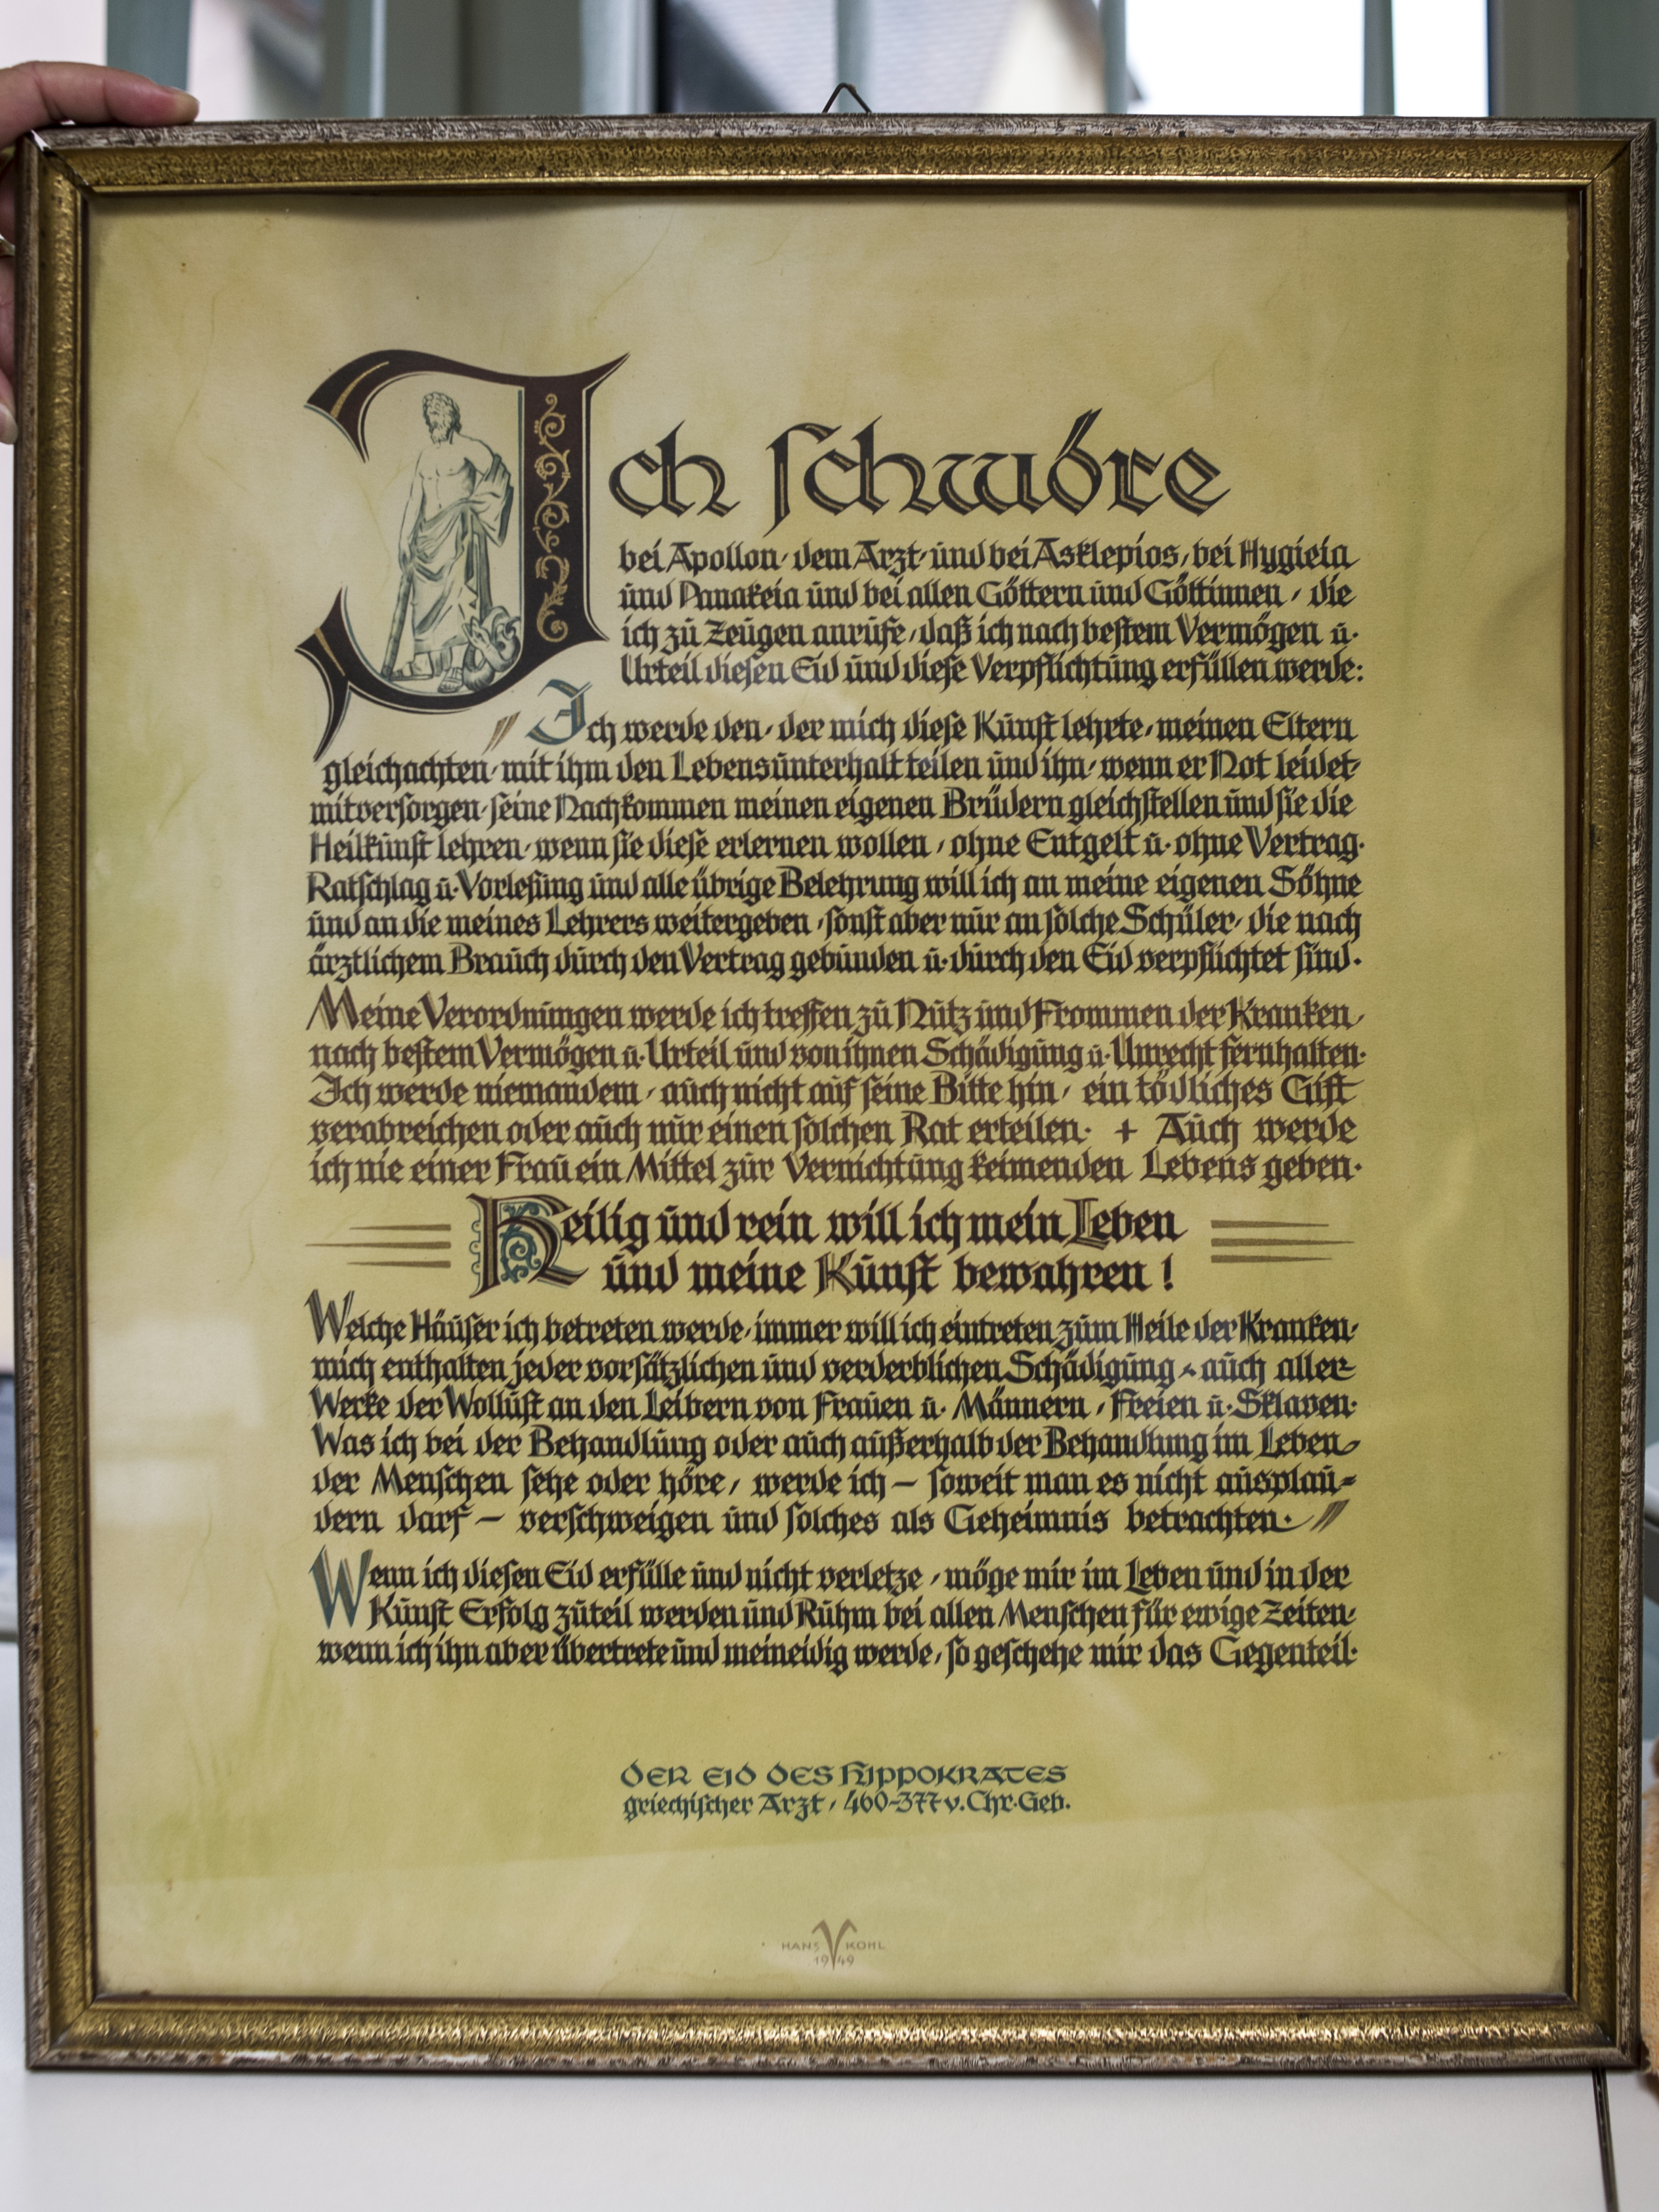 Ich schwöre
bei Apollon, dem Arzt, und bei Asklepios, bei Hygieia
und Panakeia und bei allen Göttern und Göttinnen, die
ich zu Zeugen anrufe, daß ich nach bestem Vermögen u.
Urteil diesen Eid und diese Verpflichtung erfüllen werde:
"Ich werde den, der mich diese Kunst lehrte, meinen Eltern
gleichachten, mit ihm den Lebensunterhalt teilen und ihn, wenn er Not leidet,
mitversorgen, seine Nachkommen meinen eigenen Brüdern gleichstellen und sie die
Heilkunst lehren, wenn sie diese erlernen wollen, ohne Entgelt u. ohne Vertrag.
Ratschlag u. Vorlesung und alle übrige Belehrung will ich an meine eigenen Söhne
und an die meines Lehrers weitergeben, sonst aber nur an solche Schüler, die nach
ärztlichem Brauch durch den Vertrag gebunden u. durch den Eid verpflichtet sind.
Meine Verordnungen werde ich treffen zu Nutz und Frommen der Kranken,
nach bestem Vermögen u. Urteil und von ihnen Schädigung u. Unrecht fernhalten.
Ich werde niemandem, auch nicht auf seine Bitte hin, ein tödliches Gift
verabreichen oder auch nur einen solchen Rat erteilen. + Auch werde
ich nie einer Frau ein Mittel zur Vernichtung keimenden Lebens geben.
Heilig und rein will ich mein Leben
und meine Kunst bewahren!
Welche Häuser ich betreten werde, immer will ich eintreten zum Heile der Kranken,
mich enthalten jeder vorsätzlichen und verderblichen Schädigung, auch aller
Werke der Wollust an den Leibern von Frauen u. Männern, Freien u. Sklaven.
Was ich bei der Behandlung oder auch außerhalb der Behandlung im Leben
der Menschen sehe oder höre, werde ich – soweit man es nicht ausplau=
dern darf – verschweigen und solches als Geheimnis betrachten."
Wenn ich diesen Eid erfülle und nicht verletze, möge mir im Leben und in der
Kunst Erfolg zuteil werden und Ruhm bei allen Menschen für ewige Zeiten,
wenn ich ihn aber übertrete und meineidig werde, so geschehe mir das Gegenteil.
DER EID DES HIPPOKRATES
griechischer Arzt, 460-377 v. Chr. Geb.
HANS KOHL
1949